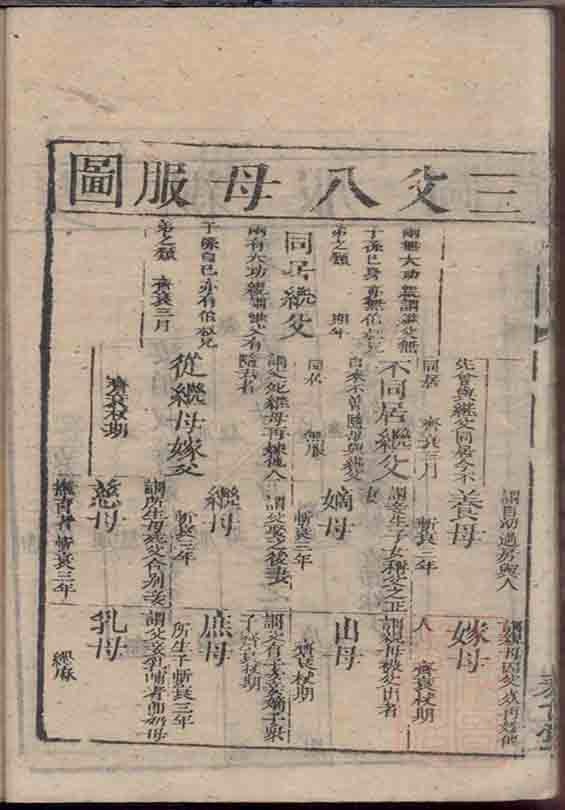 三父八母服圖
同居繼父
兩無大功親謂繼父無
子孫已身亦無伯叔兄
弟之類 期年
兩有大功親謂繼父有
子孫自已亦有伯叔兄
弟之類 齊衰三月
不同居繼父
先曾與繼父同居今不
同居 齊衰三月
自來不曾隨母與繼父
同居 無服
從繼母嫁父
謂父死繼母再嫁他人
隨去者
齊衰杖期
養母
謂自幼過房與人
斬衰三年
嫡母
謂妾生子女稱父之正
斬衰三年
繼母
謂父娶之後妻
斬衰三年
慈母
謂所生母死父令別妾
撫育者斬衰三年
嫁母
謂親母因父死再嫁他
人 齊衰杖期
出母
謂親母被父出者
齊衰杖期
庶母
謂父有子妾嫡子衆
子齊衰杖期
所生子斬衰三年
乳母
謂父妾乳哺者即奶母
緦麻